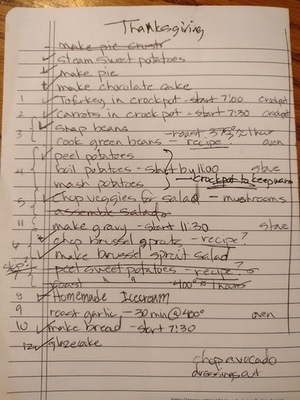 Thanksgiving
- make pie crust
✓ steam sweet potatoes
make pie
make chocolate cake
1 ✓ Tofurkey in crockpot - start 7:00 crockpot
2 ✓ carrots in crockpot - start 7:30 crockpot
3 ✓ snap beans - roast 375° 1 hour
cook green beans - recipe oven
✓ peel potatoes
4 boil potatoes - start by 11:00 stove
mash potatoes - crockpot to keep warm
5 ✓ chop veggies for salad - mushrooms
assemble salad
11 make gravy - start 11:30 stove
6 chop brussel sprouts - recipe?
✓ make brussel sprout salad
7 peel sweet potatoes - recipe?
roast " " 400° 1 hour
8 ✓ Homemade Icecream
9 roast garlic - 30 min @ 400° oven
10 ✓ make bread - start 7:30
12 ✓ glaze cake
chop avocado
dressings out